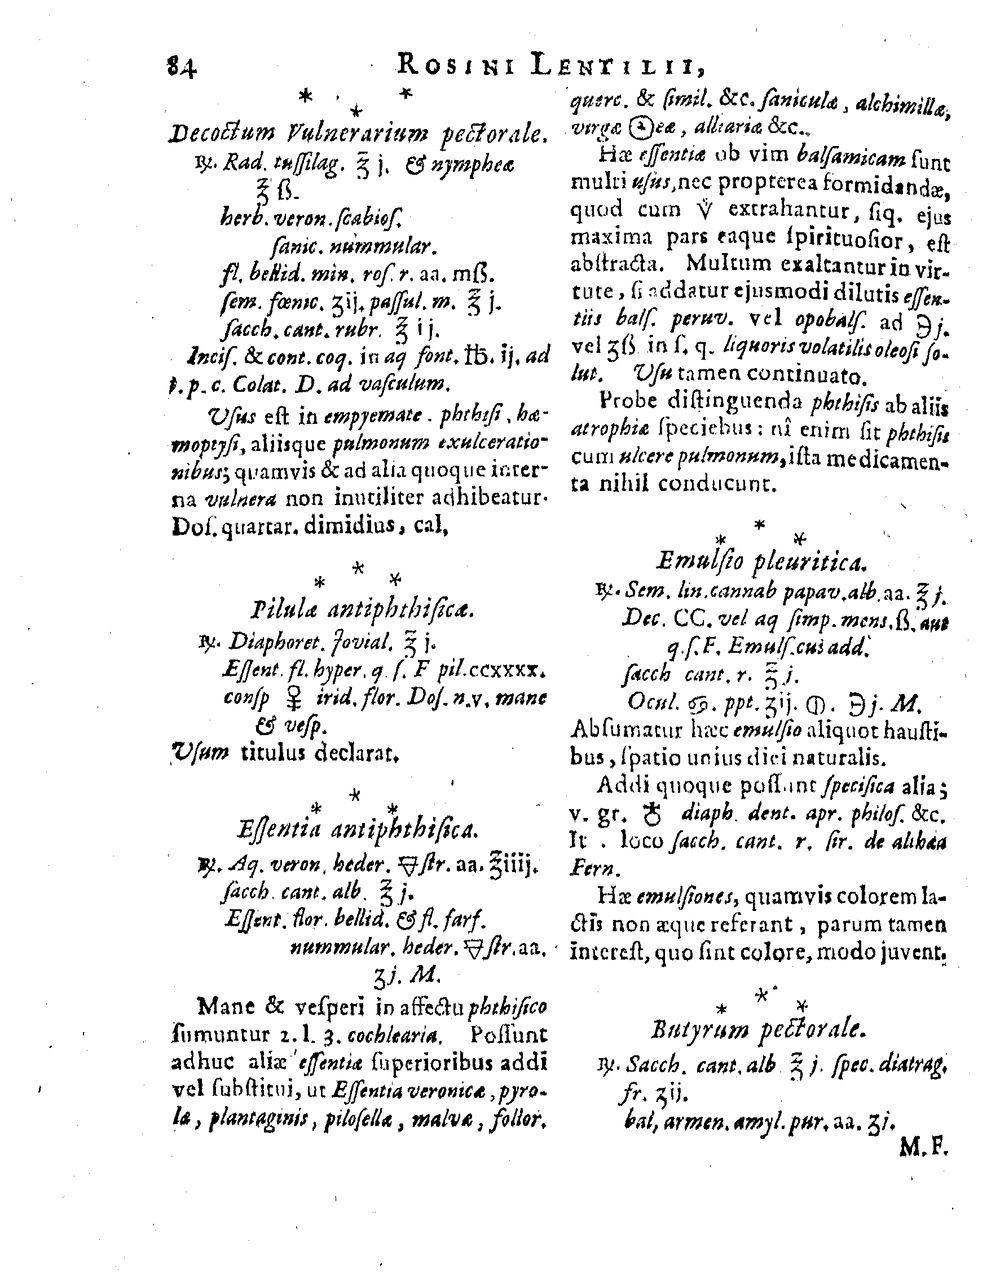 84
ROSINI LENTILII,
* * *
Decoctum Vulnerarium pectorale.
℞. Rad. tuſſilag. ℥ j. & nympheæ
℥ ß.
herb. veron. ſcabioſ.
ſanic. nummular.
fl. bellid. min. roſ. r. aa. mß.
ſem. fœnic. ʒij. paſſul. m. ℥ j.
ſacch. cant. rubr. ℥ ij.
Inciſ. & cont. coq. in aq font. ℔. ij. ad
t. p. c. Colat. D. ad vaſculum.
Uſus eſt in empyemate. phthiſi, hæ-
moptyſi, aliisque pulmonum exulceratio-
nibus; quamvis & ad alia quoque inter-
na vulnera non inutiliter adhibeatur.
Doſ. quartar. dimidius, cal,
* * *
Pilulæ antiphthiſicæ.
℞. Diaphoret. Jovial. ℥ j.
Eſſent. fl. hyper. q. ſ. F pil. ccxxxx.
conſp ♀ irid. flor. Doſ. n. v. mane
& veſp.
Uſum titulus declarat.
* * *
Eſſentia antiphthiſica.
℞. Aq. veron. heder. 🜃ſtr. aa. ℥iiij.
ſacch. cant. alb. ℥ j.
Eſſent. flor. bellid. & fl. farf.
nummular. heder. 🜃ſtr. aa.
ʒj. M.
Mane & veſperi in affectu phthiſico
ſumuntur 2. l. 3. cochlearia. Poſſunt
adhuc aliæ eſſentiæ ſuperioribus addi
vel ſubſtitui, ut Eſſentia veronicæ, pyro-
læ, plantaginis, piloſellæ, malvæ, follor.
querc. & ſimil. &c. ſaniculæ, alchimillæ,
virgæ ☉eæ, alliariæ &c..
Hæ eſſentiæ ob vim balſamicam ſunt
multi uſus, nec propterea formidandæ,
quod cum V̈ extrahantur, ſiq. ejus
maxima pars eaque ſpirituoſior, eſt
abſtracta. Multum exaltantur in vir-
tute, ſi addatur ejusmodi dilutis eſſen-
tiis balſ. peruv. vel opobalſ. ad ℈ j.
vel ʒß in ſ. q. liquoris volatilis oleoſi ſo-
lut. Uſu tamen continuato.
Probe diſtinguenda phthiſis ab aliis
atrophiæ ſpeciebus: nî enim ſit phthiſis
cum ulcere pulmonum, iſta medicamen-
ta nihil conducunt.
* * *
Emulſio pleuritica.
℞. Sem. lin. cannab papav. alb. aa. ℥ j.
Dec. CC. vel aq ſimp. menſ. ß. aut
q. ſ. F. Emulſ. cui add.
ſacch cant. r. ℥ j.
Ocul. ♋. ppt. ʒij. 🜕. ℈ j. M.
Abſumatur hæc emulſio aliquot hauſti-
bus, ſpatio unius diei naturalis.
Addi quoque poſſunt ſpecifica alia;
v. gr. ♁ diaph. dent. apr. philoſ. &c.
It. loco ſacch. cant. r. ſir. de althæa
Fern.
Hæ emulſiones, quamvis colorem la-
ctis non æque referant, parum tamen
intereſt, quo ſint colore, modo juvent.
* * *
Butyrum pectorale.
℞. Sacch. cant. alb ℥ j. ſpec. diatrag.
fr. ʒij.
bol. armen. amyl. pur. aa. ʒj.
M. F.